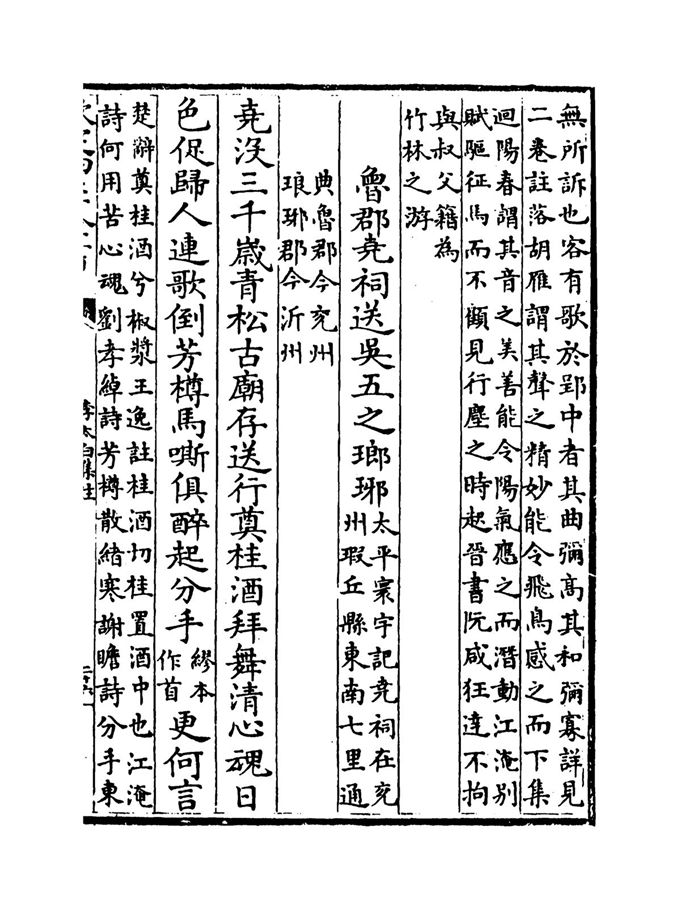 無所訴也客有歌於郢中者其曲彌髙其和彌寡詳見
二卷註落胡雁謂其聲之精妙能令飛鳥感之而下集
迴陽春謂其音之美善能令陽氣應之而潛動江淹别
賦驅征馬而不顧見行塵之時起晉書阮咸狂達不拘
與叔父籍為
竹林之游
魯郡堯祠送吳五之瑯琊太平寰宇記堯祠在兖
州瑕丘縣東南七里通
典魯郡今兖州
琅琊郡今沂州
堯沒三千歳青松古廟存送行奠桂酒拜舞清心魂日
色促歸人連歌倒芳樽馬嘶俱醉起分手繆本
作首更何言
楚辭奠桂酒兮椒漿王逸註桂酒切桂置酒中也江淹
詩何用苦心魂劉孝綽詩芳樽散緒寒謝瞻詩分手東
李太白集注